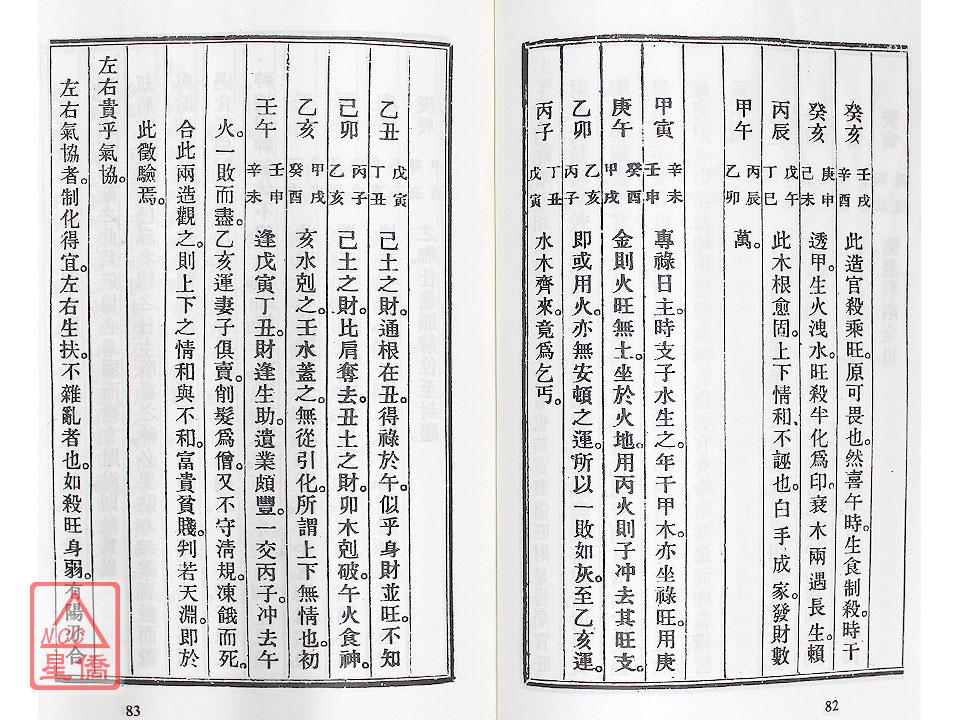 癸亥 壬戌 辛酉 此造官殺乘旺。原可畏也。然喜午時。生食制殺。時干
癸亥 庚申 己未 透甲。生火洩水。旺殺半化爲印。衰木兩遇長生。賴
丙辰 戊午 丁巳 此木根愈固。上下情和。不誣也。白手成家。發財數
甲午 丙辰 乙卯 萬。
甲寅 辛未 壬申 專祿日主。時支子水生之。年干甲木。亦坐祿旺。用庚
庚午 癸酉 甲戌 金則火旺無土。坐於火地。用丙火則子冲去其旺支。
乙卯 乙亥 丙子 即或用火。亦無安頓之運。所以一敗如灰。至乙亥運。
丙子 丁丑 戊寅 水木齊來。竟爲乞丐。
82
乙丑 戊寅 丁丑 己土之財。通根在丑。得祿於午。似乎身財並旺。不知
己卯 丙子 乙亥 己土之財。比肩奪去。丑土之財。卯木剋破。午火食神。
乙亥 甲戌 癸酉 亥水剋之。壬水蓋之。無從引化。所謂上下無情也。初
壬午 壬申 辛未 逢戊寅丁丑。財逢生助。遺業頗豐。一交丙子。冲去午
火。一敗而盡。乙亥運妻子俱賣。削髮爲僧。又不守清規。凍餓而死。
合此兩造觀之。則上下之情和與不和。富貴貧賤。判若天淵。即於
此徵驗焉。
左右貴乎氣協。
左右氣協者。制化得宜。左右生扶。不雜亂者也。如殺旺身弱。有陽刃合
83
NCC
星僑